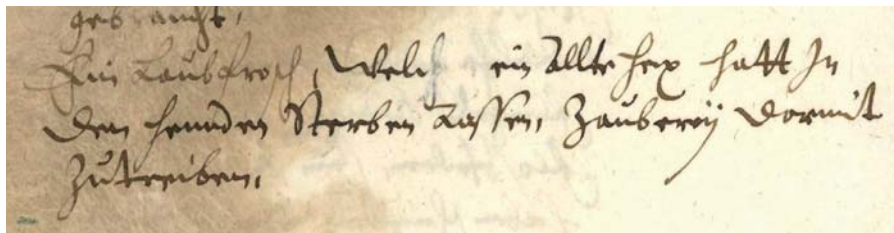 gebraucht,
Ein Laubfrosch, Welch ein Allte hex hatt In
den hennden Sterben Lassen, Zauberey dormit
Zutreiben,